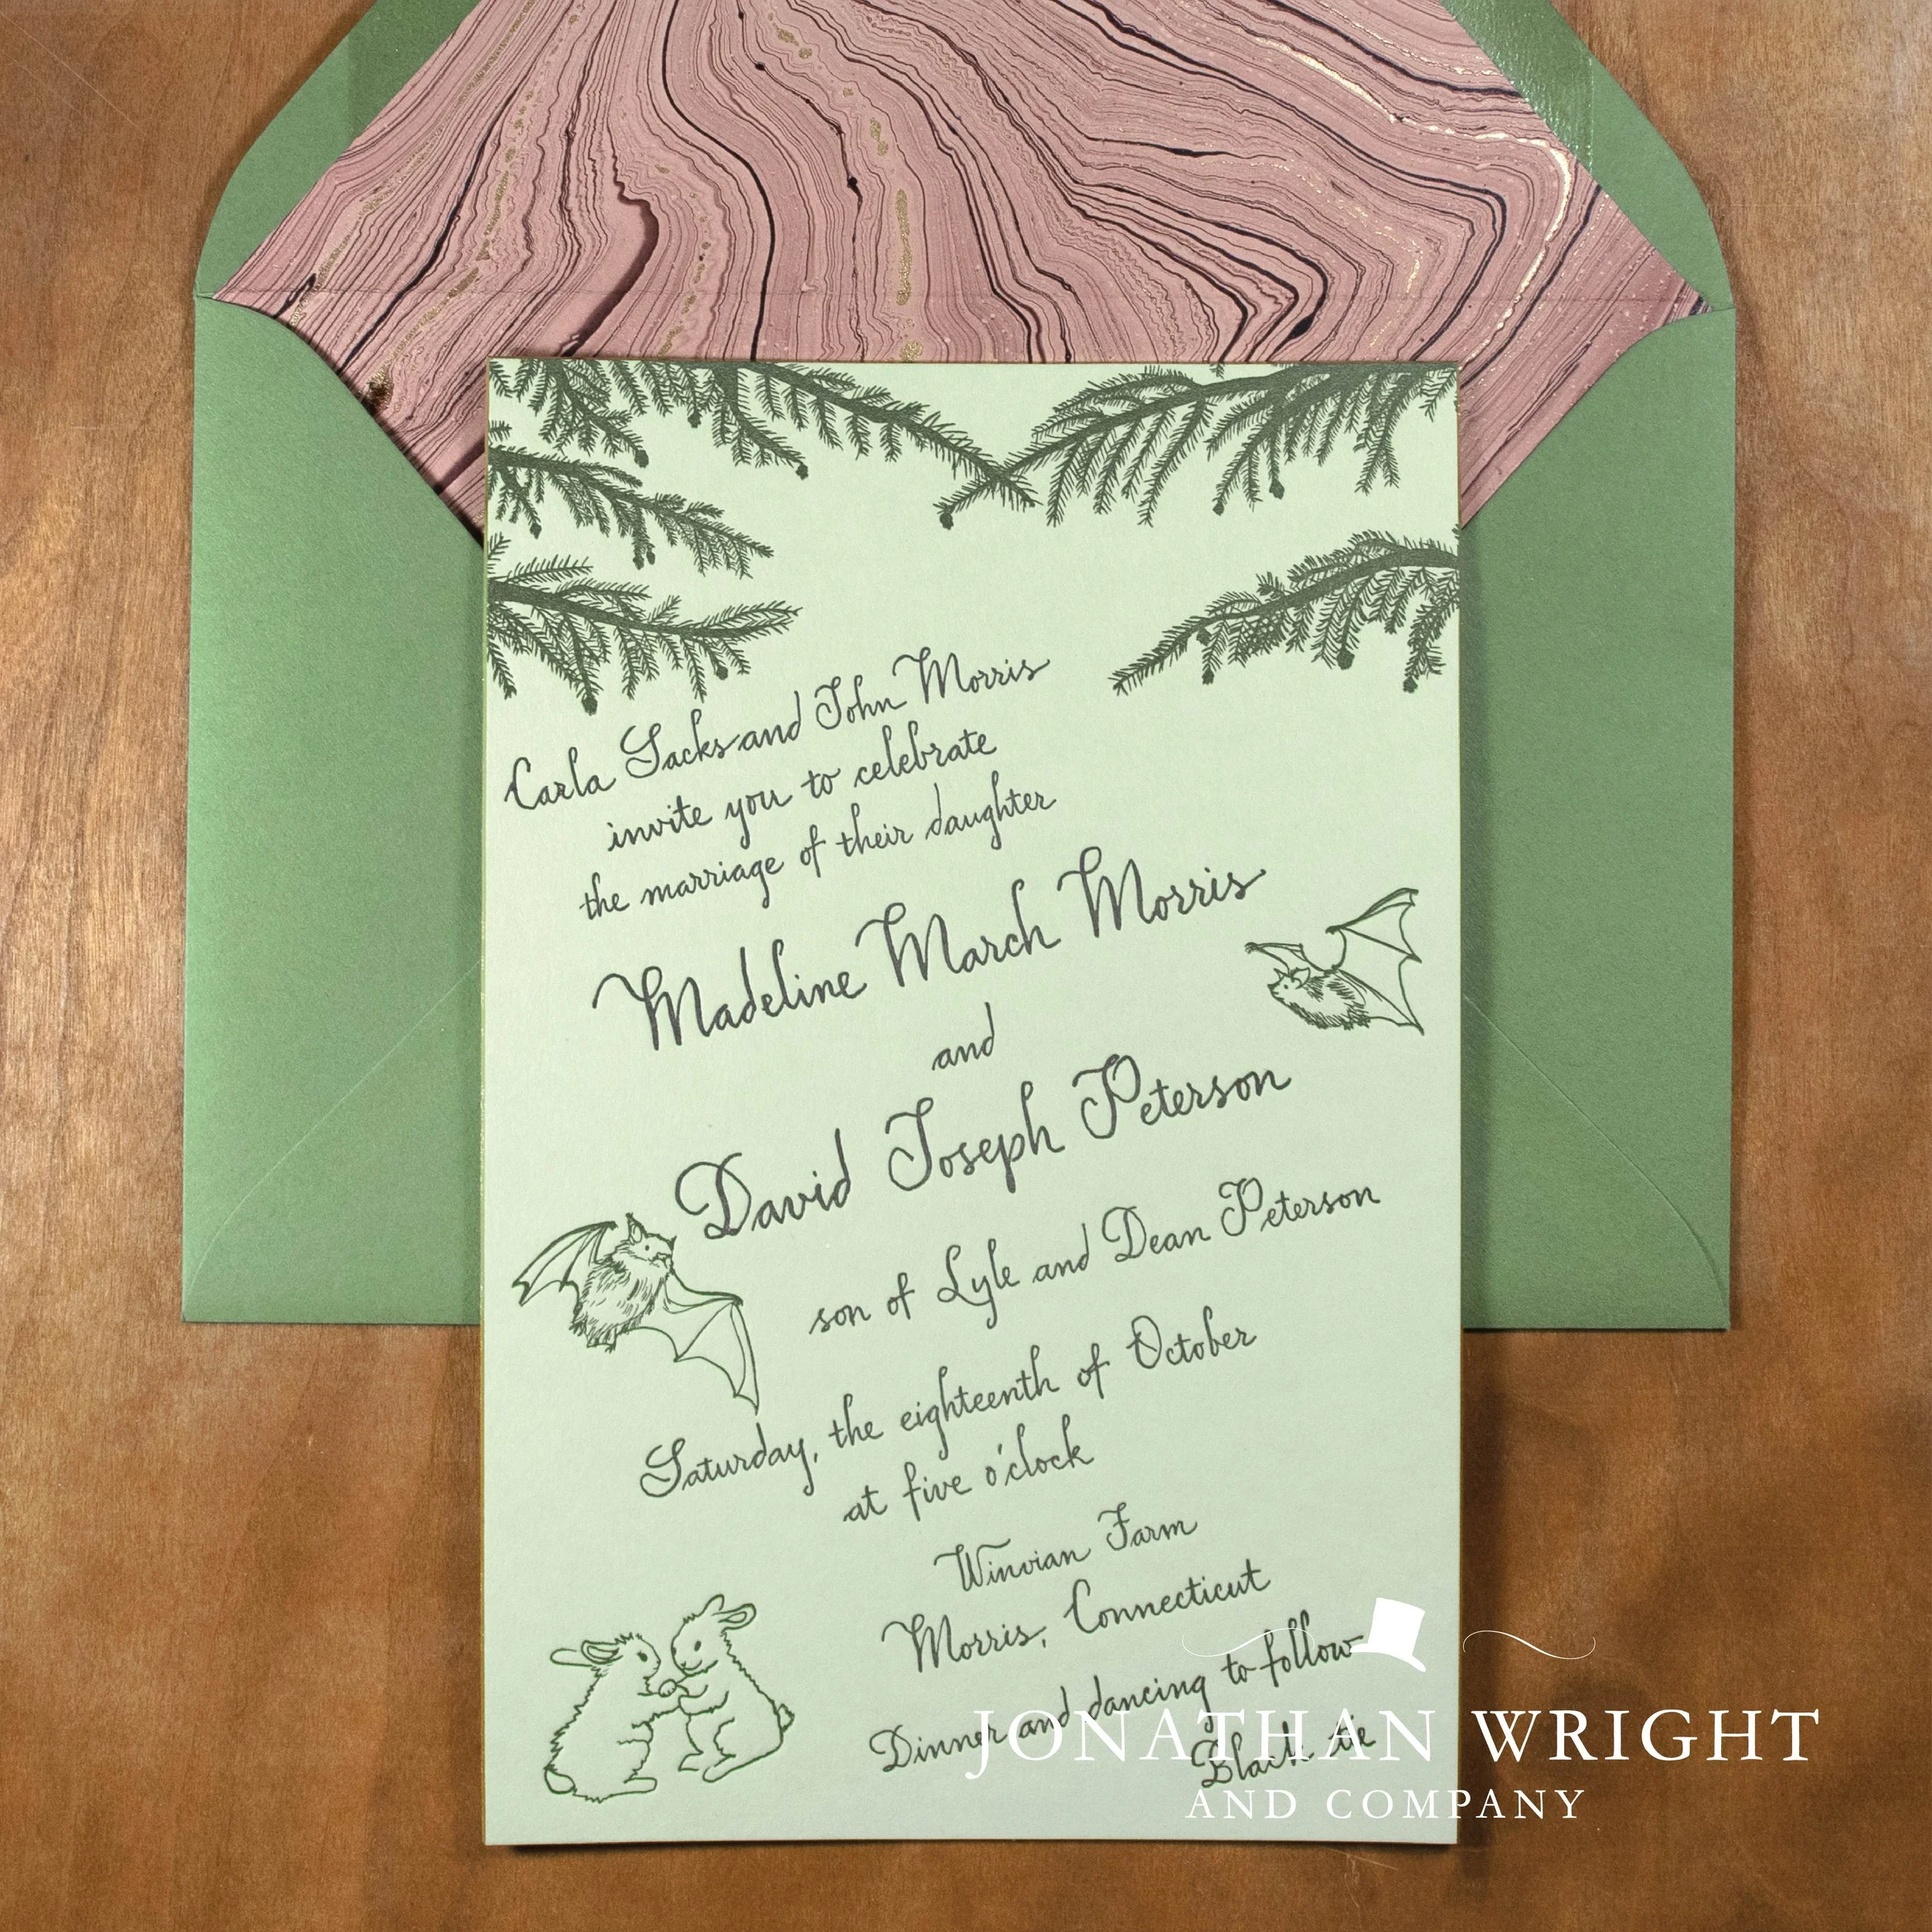 Carla Sacks and John Morris
invite you to celebrate
the marriage of their daughter
Madeline March Morris
and
David Joseph Peterson
son of Lyle and Dean Peterson
Saturday, the eighteenth of October
at five o'clock
Winvian Farm
Morris, Connecticut
Dinner and dancing to follow
Black tie
JONATHAN WRIGHT
AND COMPANY